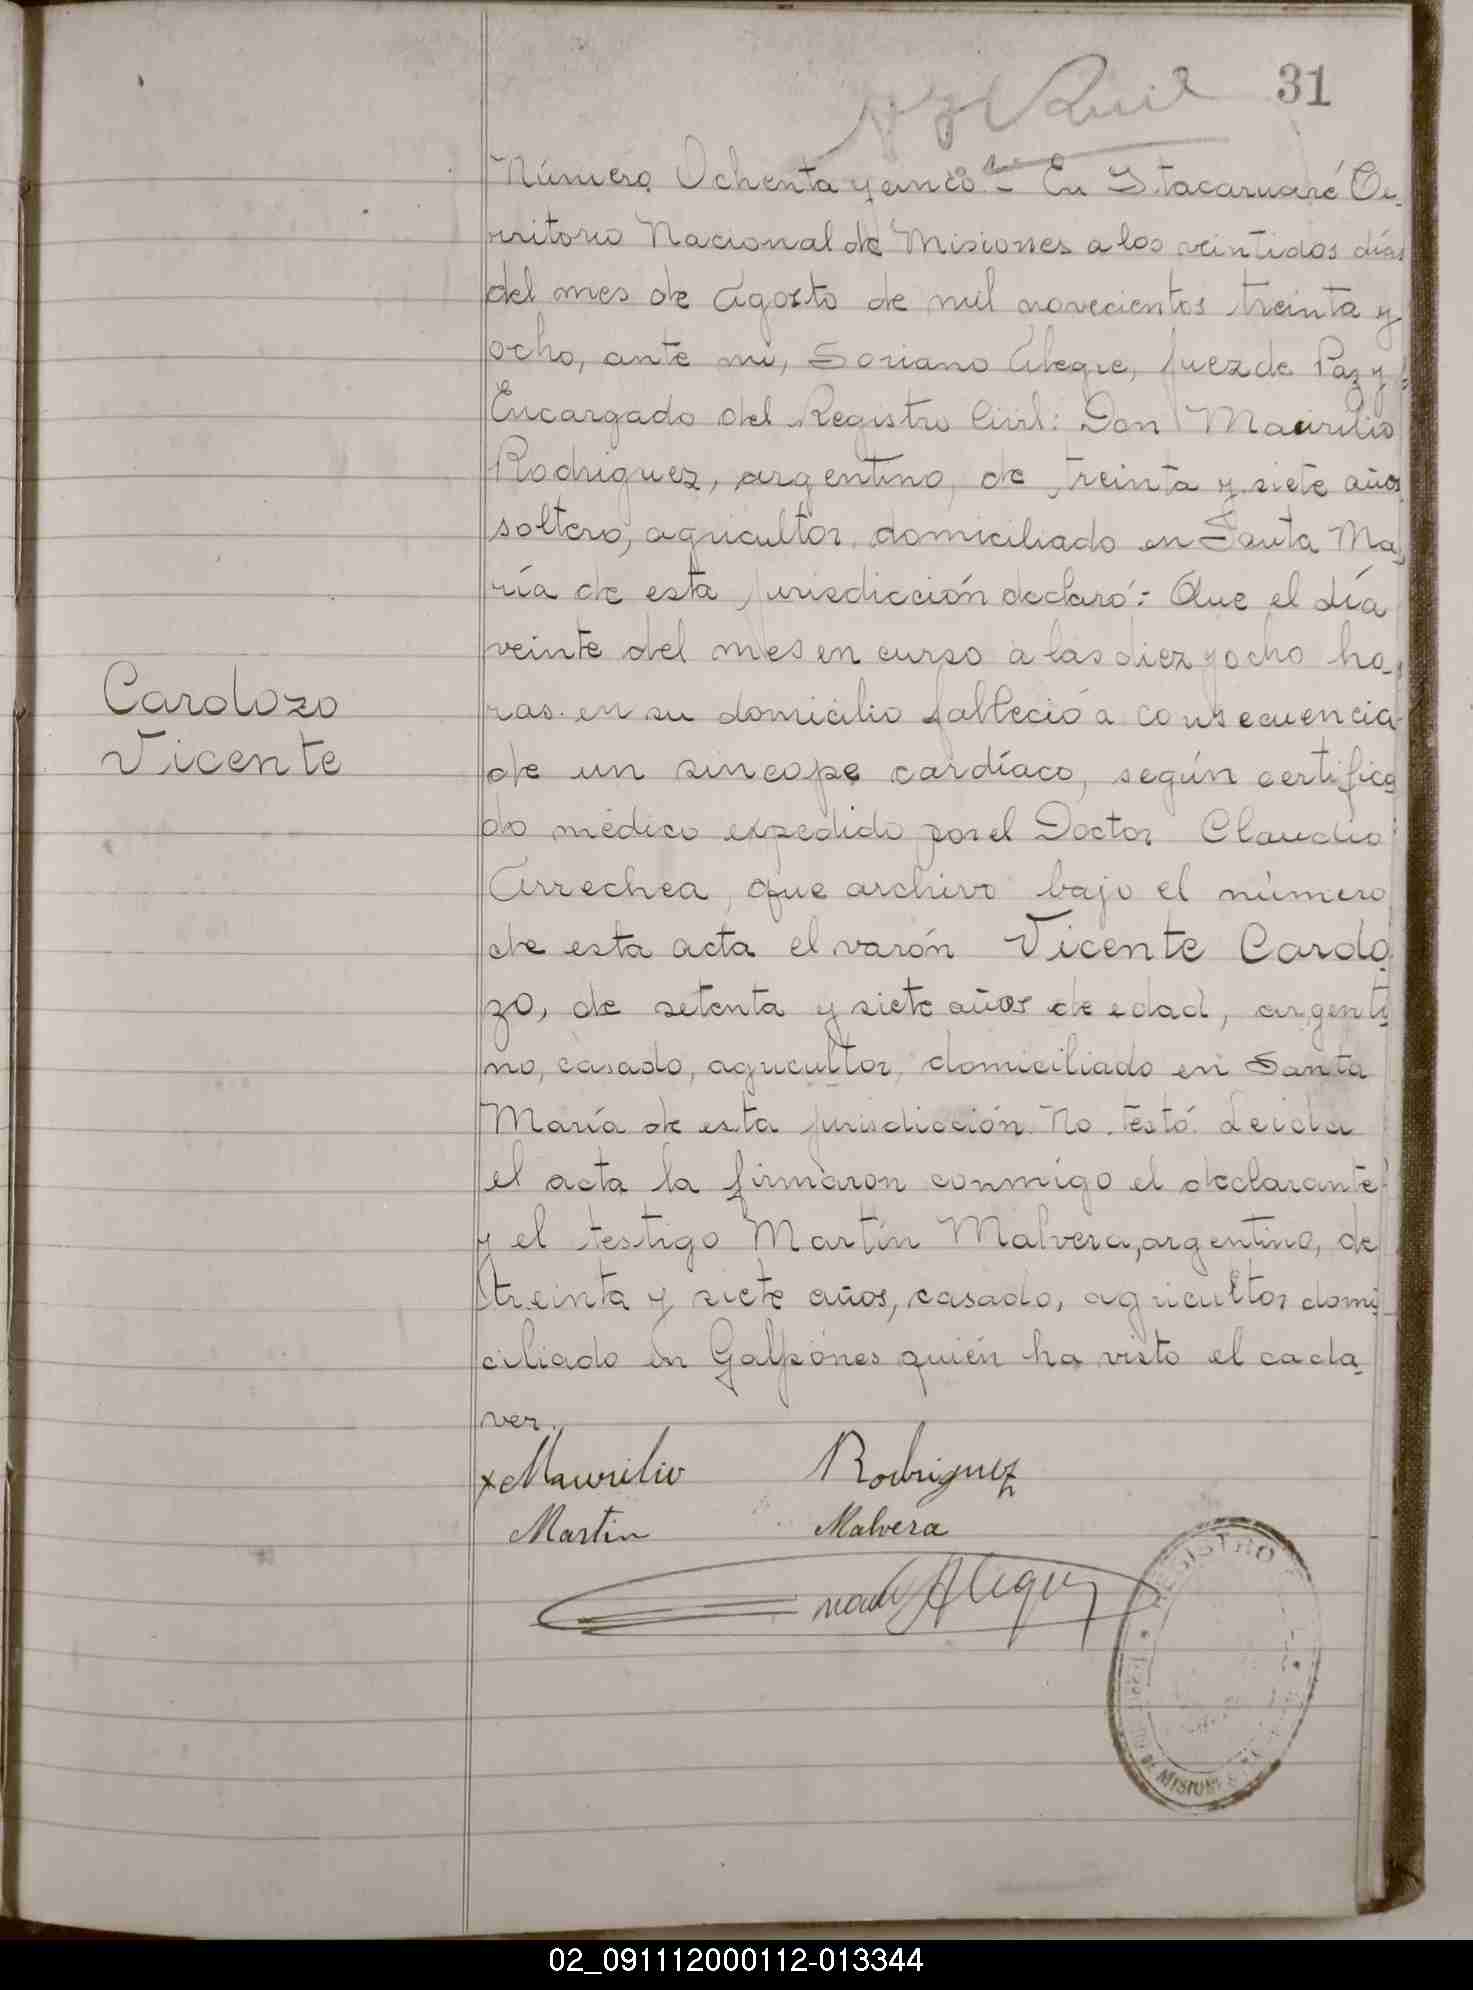 31
Número Ochenta y cinco - En Itacaruaré Te-
rritorio Nacional de Misiones a los veintidos días
del mes de Agosto de mil novecientos treinta y
ocho, ante mi, Soriano Alegre, Juez de Paz y
Encargado del Registro Civil: Don Maurilio
Rodriguez, argentino, de treinta y siete años
soltero, agricultor, domiciliado en Santa Ma-
ría de esta jurisdicción declaró:- Que el día
veinte del mes en curso a las diez y ocho ho-
ras en su domicilio falleció a consecuencia
de un sincope cardíaco, según certifica
do médico expedido por el Doctor Claudio
Arrechea, que archivo bajo el número
de esta acta el varón Vicente Cardo
zo, de setenta y siete años de edad, argenti
no, casado, agricultor, domiciliado en Santa
María de esta jurisdicción. No testó. Leida
el acta la firmaron conmigo el declarante
y el testigo Martín Malvera, argentino, de
treinta y siete años, casado, agricultor domi-
ciliado en Galpónes quién ha visto el cada-
ver.
Cardozo
Vicente
x Maurilio Rodriguez
Martin Malvera
Alegre
REGISTRO
DE MISIONES
02_091112000112-013344